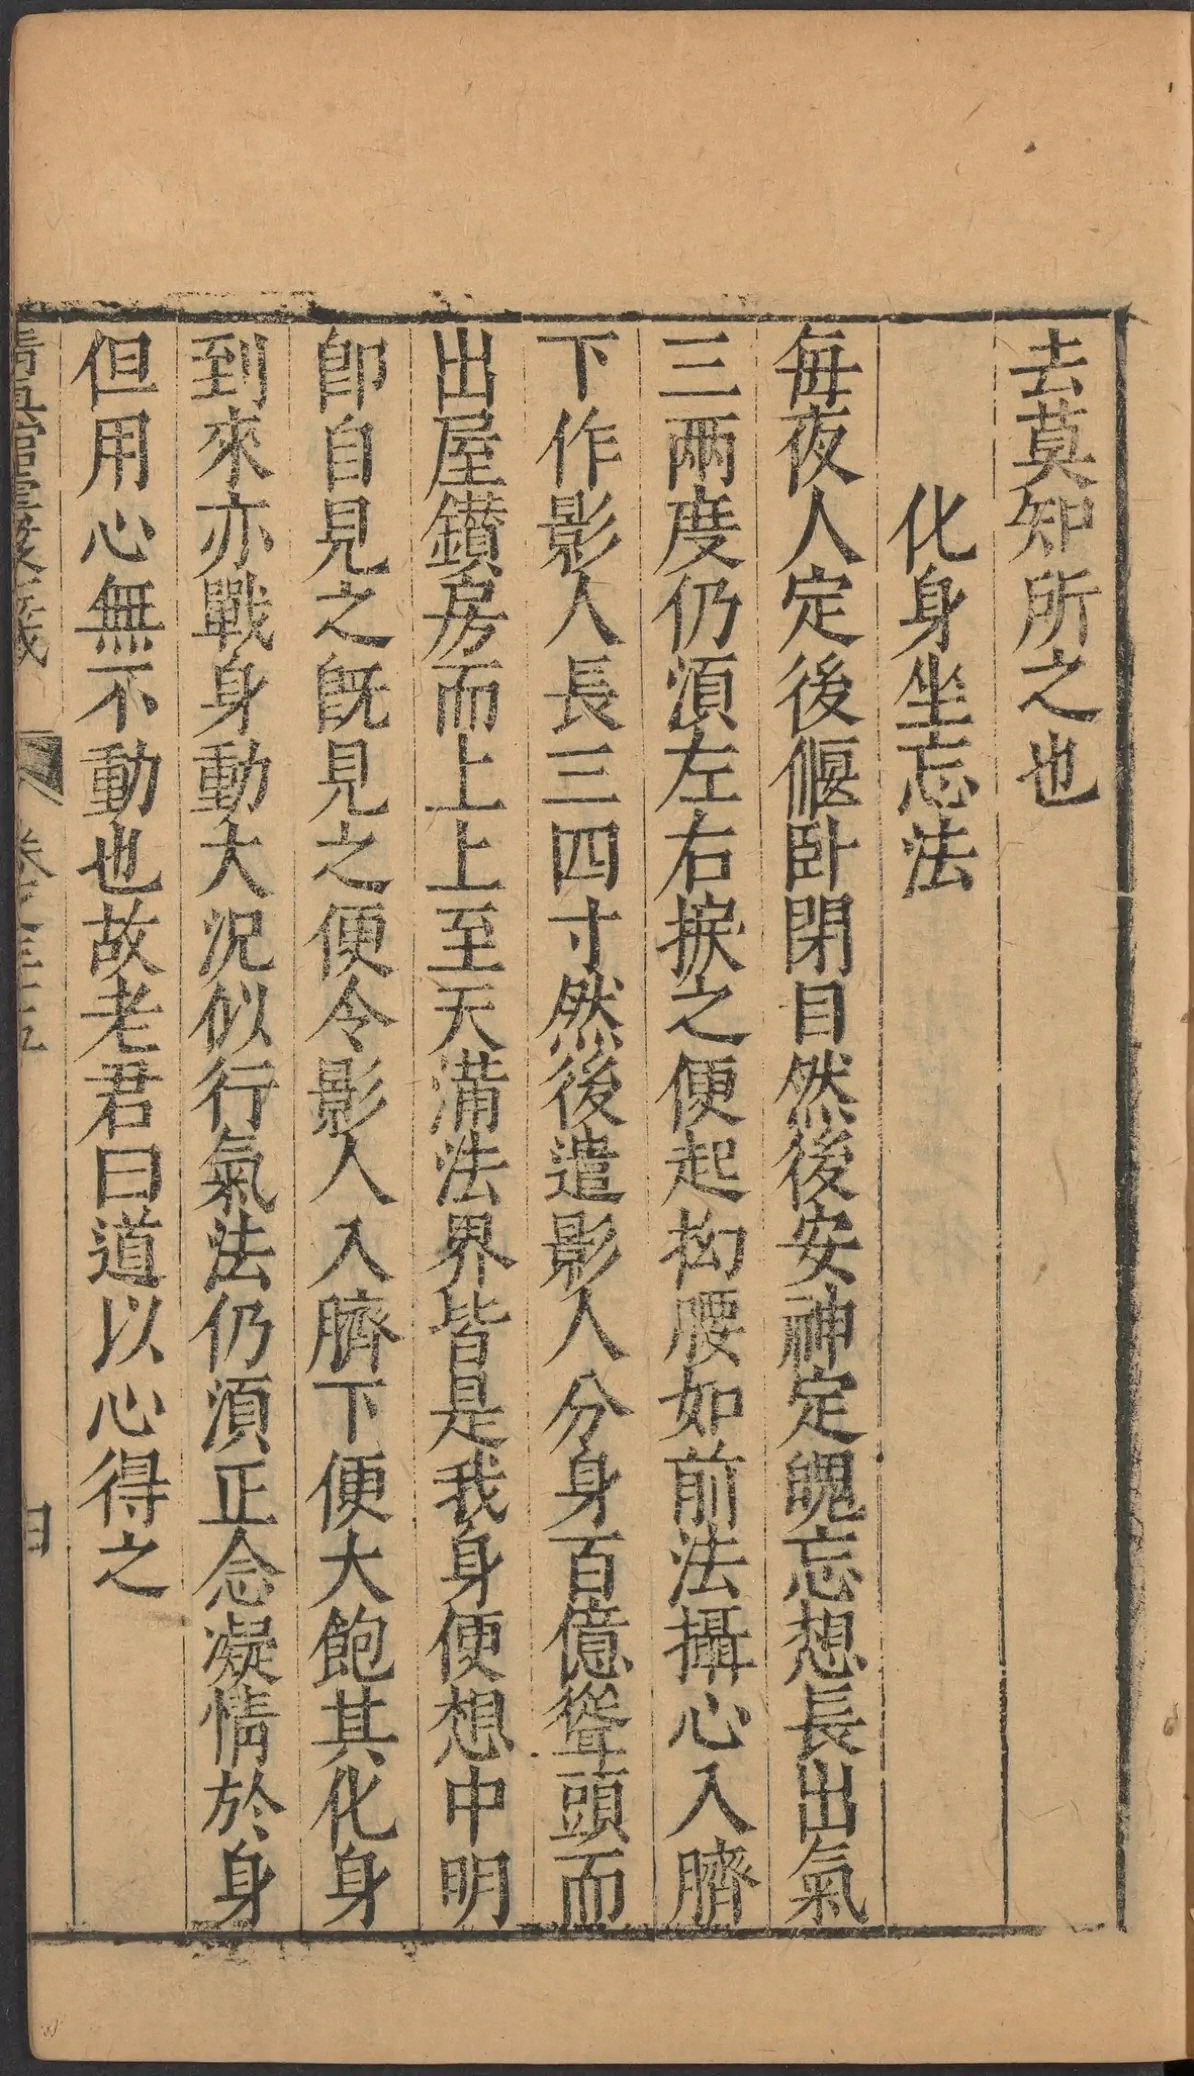 去莫知所之也
化身坐忘法
每夜人定後偃臥閉目然後安神定魄忘想長出氣
三兩度仍須左右捩之便起拗腰如前法攝心入臍
下作影人長三四寸然後遣影人分身百億聳頭而
出屋鑽房而上上至天滿法界皆是我身便想中明
卽自見之旣見之便令影人入臍下便大飽其化身
到來亦戰身動大况似行氣法仍須正念凝情於身
但用心無不動也故老君曰道以心得之